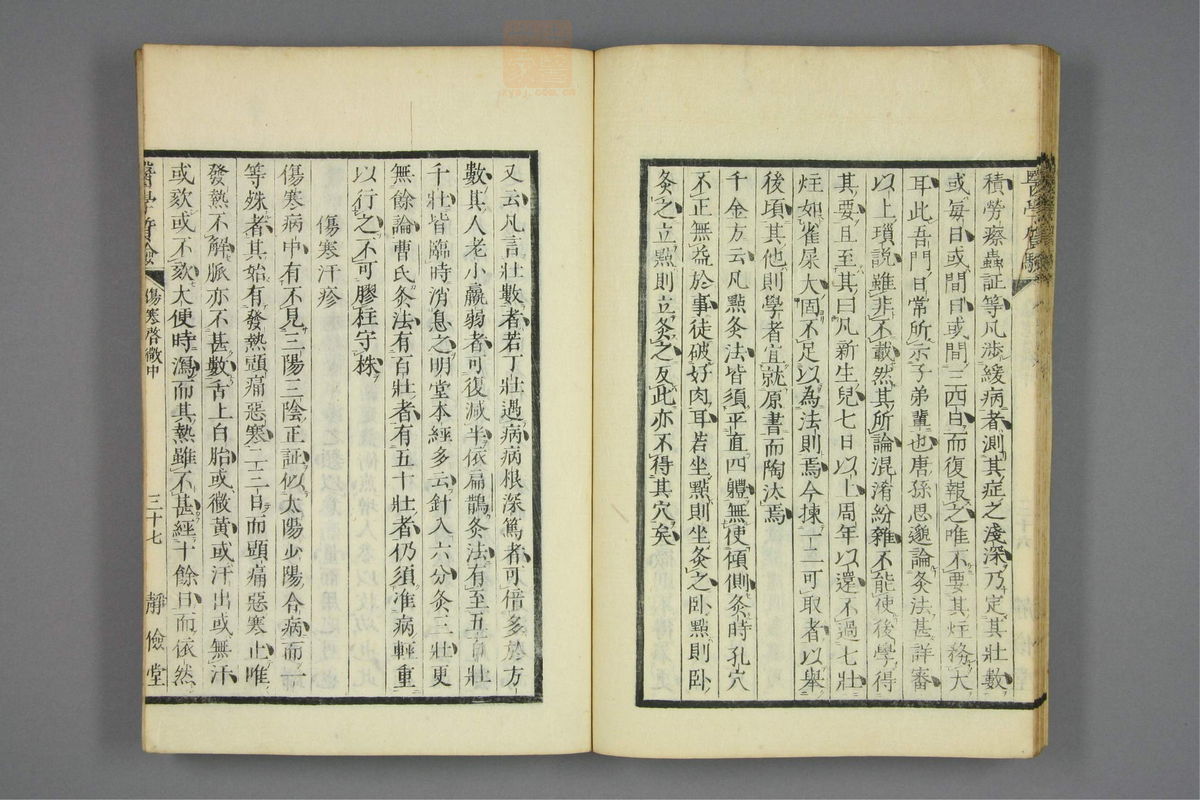 積勞瘵蟲証等凡涉緩病者測其症之淺深乃定其壯數
或每日或間日或間三四日而復報之唯不要其炷務大
耳此吾門日常所示子弟輩也唐孫思邈論灸法甚詳審
以上瑣說雖非不載然其所論混淆紛雜不能使後學得
其要且至其曰凡新生兒七日以上周年以還不過七壯
炷如雀屎大固不足以為法則焉今揀一二可取者以舉
後頃其他則學者宜就原書而陶汰焉
千金方云凡點灸法皆須平直四軆無使傾側灸時孔穴
不正無益於事徒破好肉耳若坐點則坐灸之臥點則臥
灸之立點則立灸之反此亦不得其穴矣
又云凡言壯數者若丁壯遇病病根深篤者可倍多於方
數其人老小羸弱者可復減半依扁鵲灸法有至五百壯
千壯皆臨時消息之明堂本經多云針入六分灸三壯更
無餘論曹氏灸法有百壯者有五十壯者仍須准病輕重
以行之不可膠柱守株
傷寒汗疹
傷寒病中有不見三陽三陰正証似太陽少陽合病而一
等殊者其始有發熱頭痛惡寒一二三日而頭痛惡寒止唯
發熱不解脈亦不甚數舌上白胎或微黃或汗出或無汗
或欬或不欬大便時瀉而其熱雖不甚經十餘日而依然
傷寒啓微中
三十七
靜儉堂